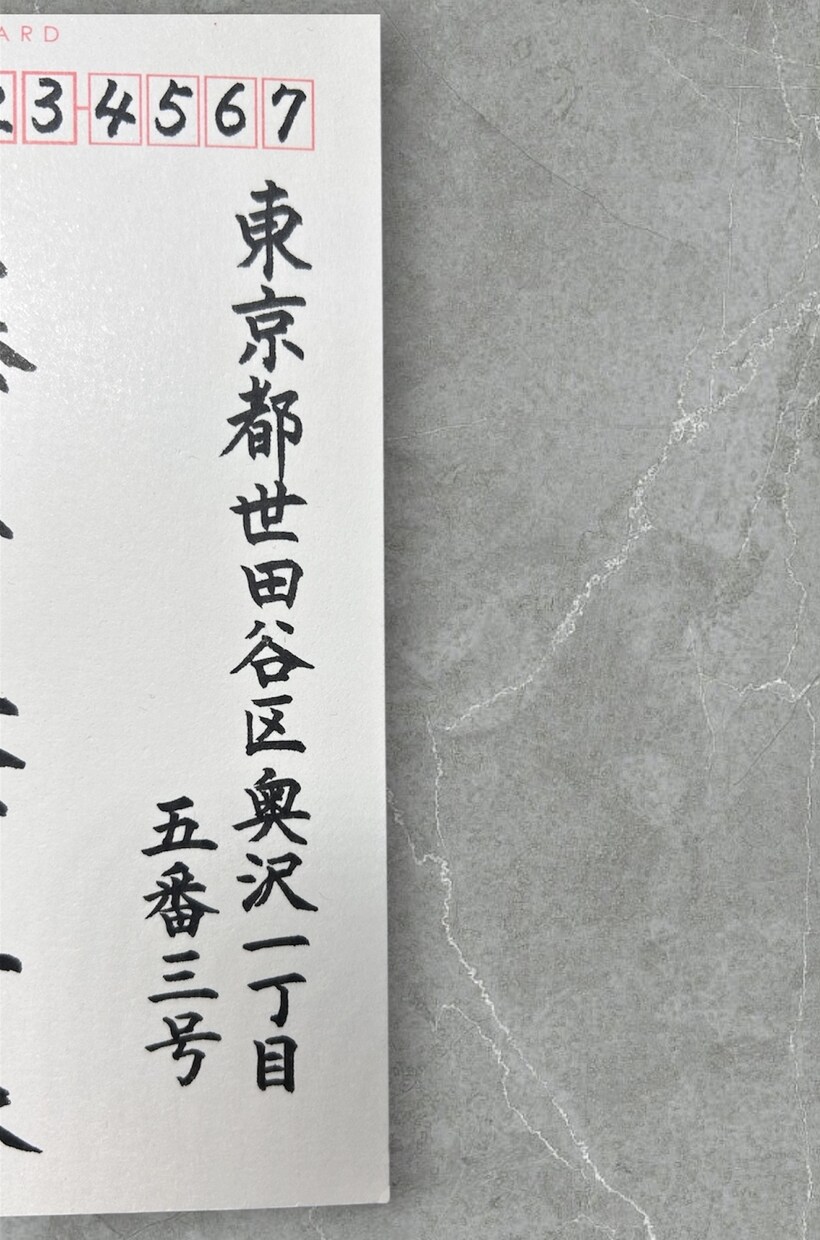 ARD
3-4567
東京都世田谷区奥沢一丁目
五番三号